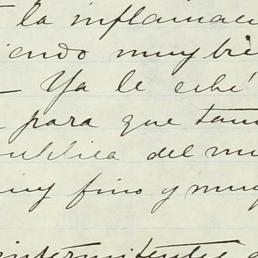 la inflamaci
iendo muy bie
— Ya le eché
para que tam
publica del mu
muy fino y muy
intermitentes